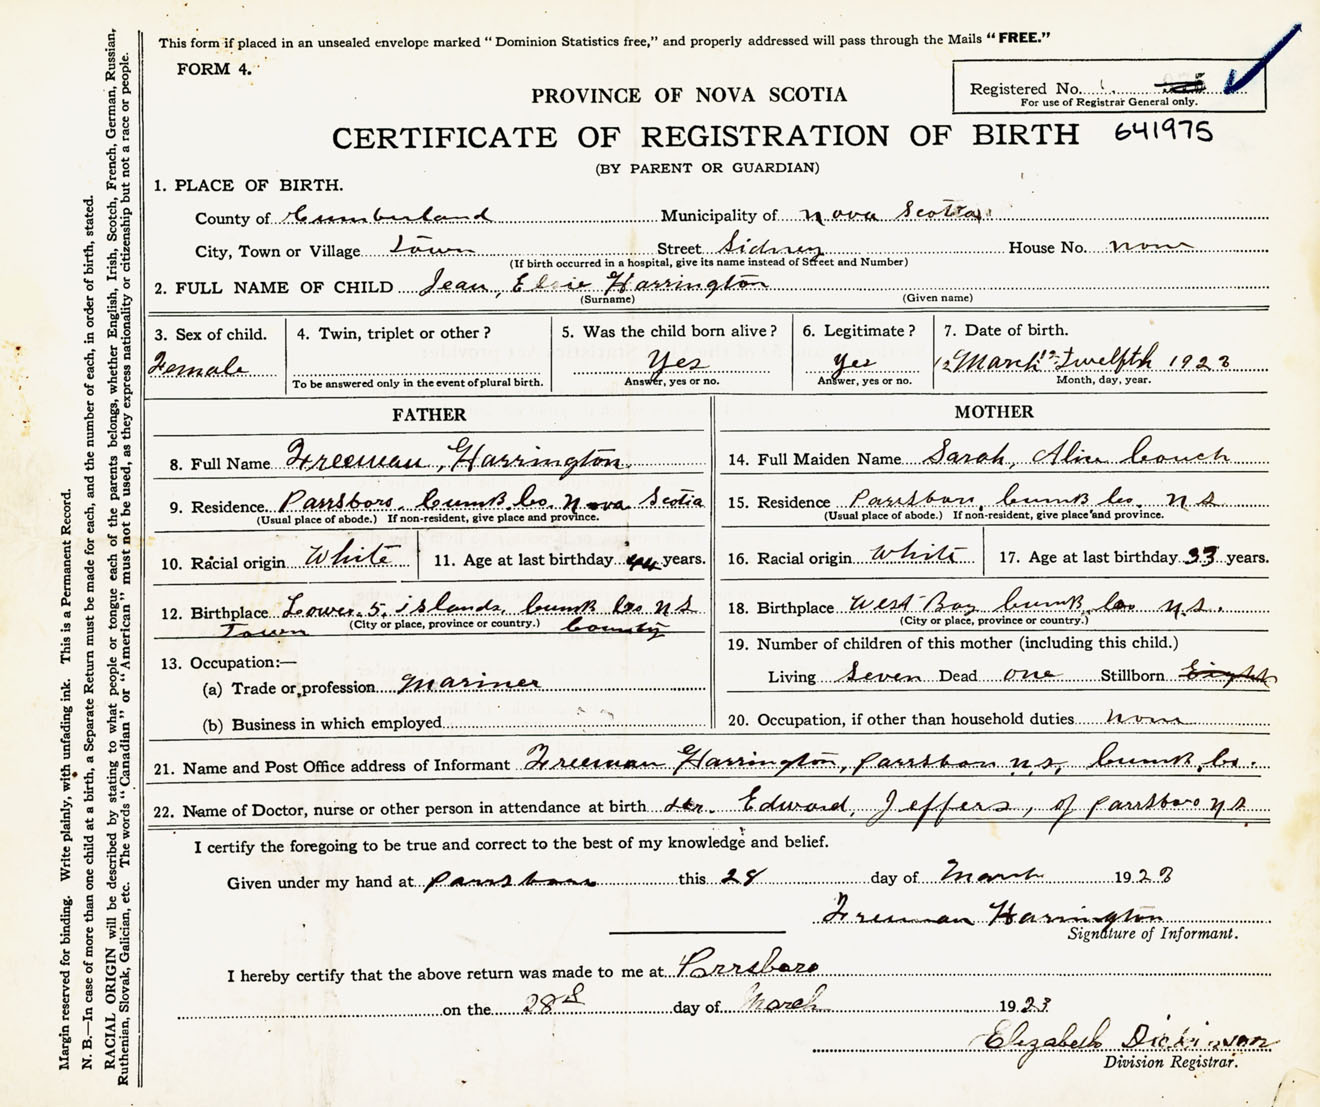 This form if placed in an unsealed envelope marked "Dominion Statistics free," and properly addressed will pass through the Mails "FREE."
FORM 4.
Registered No.
For use of Registrar General only.
PROVINCE OF NOVA SCOTIA
CERTIFICATE OF REGISTRATION OF BIRTH 641975
(BY PARENT OR GUARDIAN)
1. PLACE OF BIRTH.
County of Cumberland Municipality of Nova Scotia
City, Town or Village Town Street Sidney House No. none
(If birth occurred in a hospital, give its name instead of Street and Number)
2. FULL NAME OF CHILD Jean, Elsie Harrington
(Surname) (Given name)
3. Sex of child. 4. Twin, triplet or other? 5. Was the child born alive? 6. Legitimate? 7. Date of birth.
Female Yes Yes 12 March 12 Twelfth 1923
To be answered only in the event of plural birth. Answer, yes or no. Answer, yes or no. Month, day, year.
FATHER
8. Full Name Freeman, Harrington
9. Residence Parrsboro, Cumb. Co. Nova Scotia
(Usual place of abode.) If non-resident, give place and province.
10. Racial origin White 11. Age at last birthday 44 years.
12. Birthplace Lower 5 islands Cumb Co N S
(City or place, province or country.)
Town County
13. Occupation:—
(a) Trade or profession Mariner
(b) Business in which employed
MOTHER
14. Full Maiden Name Sarah, Alice Couch
15. Residence Parrsboro, Cumb Co. N S
(Usual place of abode.) If non-resident, give place and province.
16. Racial origin White 17. Age at last birthday 33 years.
18. Birthplace West Bay Cumb. Co N.S.
(City or place, province or country.)
19. Number of children of this mother (including this child.)
Living Seven Dead one Stillborn Eight
20. Occupation, if other than household duties none
21. Name and Post Office address of Informant Freeman Harrington, Parrsboro N.S, Cumb. Co.
22. Name of Doctor, nurse or other person in attendance at birth Edward, Jeffers, of Parrsboro N S
I certify the foregoing to be true and correct to the best of my knowledge and belief.
Given under my hand at Parrsboro this 28 day of March 1923
Freeman Harrington
Signature of Informant.
I hereby certify that the above return was made to me at Parrsboro
on the 28th day of March 1923
Elizabeth Dickinson
Division Registrar.
Margin reserved for binding. Write plainly, with unfading ink. This is a Permanent Record.
N. B.—In case of more than one child at a birth, a Separate Return must be made for each, and the number of each, in order of birth, stated.
RACIAL ORIGIN will be described by stating to what people or tongue each of the parents belongs, whether English, Irish, Scotch, French, German, Russian,
Ruthenian, Slovak, Galician, etc. The words "Canadian" or "American" must not be used, as they express nationality or citizenship but not a race or people.